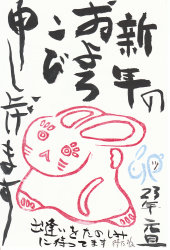 新年の
およろ
こび
申し上げます
23年 元旦
お逢いをたのしみ
に待ってます